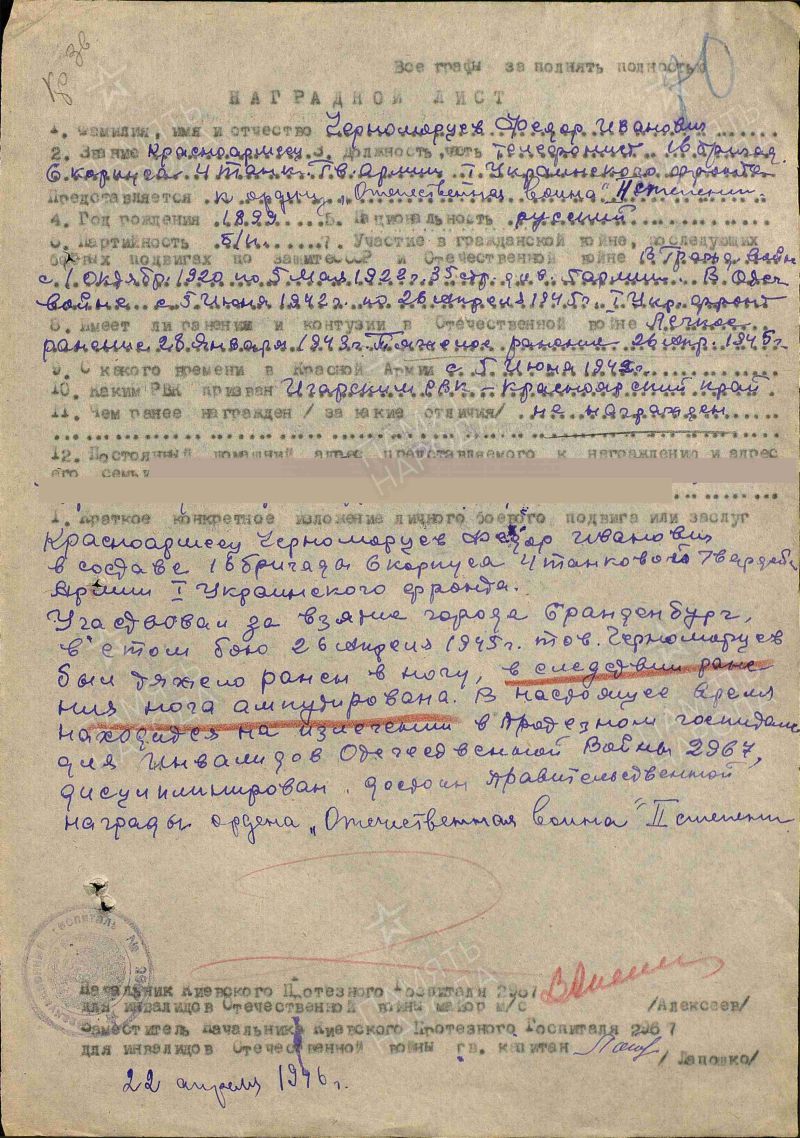 Кр зв.
70
Все графы заполнять полностью
НАГРАДНОЙ ЛИСТ
1. Фамилия, имя и отчество Черноморуцев Федор Иванович
2. Звание Красноармеец 3. Должность, часть Телефонист 16 бригад.
6 корпуса 4 танк. Гв. Армии I Украинского фронта
Представляется к ордену "Отечественная война" II степени
4. Год рождения 1899 5. Национальность русский
6. Партийность б/п. 7. Участие в гражданской войне, последующих
боевых подвигах по защите СССР и Отечественной войне В Гражд. войн
с 1 Октября 1920 по 5 Мая 1922г. 35 стр. див. 5 армии. В Отеч
войне с 5 Июня 1942г. по 26 Апреля 1945г I Укр. фронт
8. Имеет ли ранения и контузии в Отечественной войне Легкое
ранение 28 Января 1943г. Тяжелое ранение 26 апр. 1945г
9. С какого времени в Красной Армии с 5 Июня 1942г.
10. Каким РВК призван Игарским РВК – Красноярский край
11. Чем ранее награжден /за какие отличия/ не награжден
12. Постоянный домашний адрес представляемого к награждению и адрес
его семьи
1. Краткое конкретное изложение личного боевого подвига или заслуг
Красноармеец Черноморуцев Федор Иванович
в составе 16 бригады 6 корпуса 4 танкового Гвардейс
Армии I Украинского фронта.
Участвовал за взятие города Бранденбург,
в этом бою 26 Апреля 1945г. тов. Черноморуцев
был тяжело ранен в ногу, в следствии ране-
ния нога ампутирована. В настоящее время
находится на излечении в протезном госпитале
для Инвалидов Отечественной Войны 2967,
дисциплинирован, достоин правительственной
награды ордена "Отечественная война" II степени
Начальник Киевского Протезного Госпиталя 2967
для инвалидов Отечественной войны майор м/с /Алексеев/
Заместитель Начальника Киевского Протезного Госпиталя 2967
для инвалидов Отечественной войны гв. капитан /Лаповко/
22 апреля 1946г.